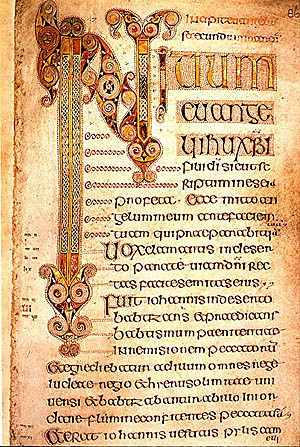 INITIUM
EUANGE
LII IHU XPI
filii di sicut s
criptum in esaia
profeta Ecce mitto an
gelum meum ante faciem
tuam qui praeparabit uia
Uox clamantis in deser
to parate uiam dni rec
tas facite semitas eius
Fuit iohannis in deserto
babtizans et praedicans
babtismum paenitentiae
in remisionem peccatorum
et egrediebatur ad illum omnes
regio et hierusolimitae uni
uersi et babtizabantur ab illo in ior
dane flumine confitentes peccata sua
Et erat iohannis uestitus pilis cam
eli